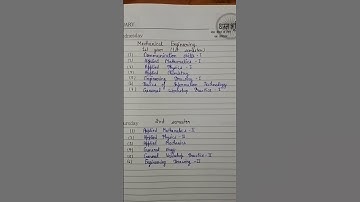 Mechanical Engineering
1st year (1st semester)
(1) Communication skills - I
(2) Applied Mathematics - I
(3) Applied Physics - I
(4) Applied Chemistry
(5) Engineering Drawing - I
(6) Basics of Information Technology
(7) General Workshop Practice - I
2nd semester
(1) Applied Mathematics - II
(2) Applied Physics - II
(3) Applied Mechanics
(4) General
(5) General Workshop Practice - II
(6) Engineering Drawing - II